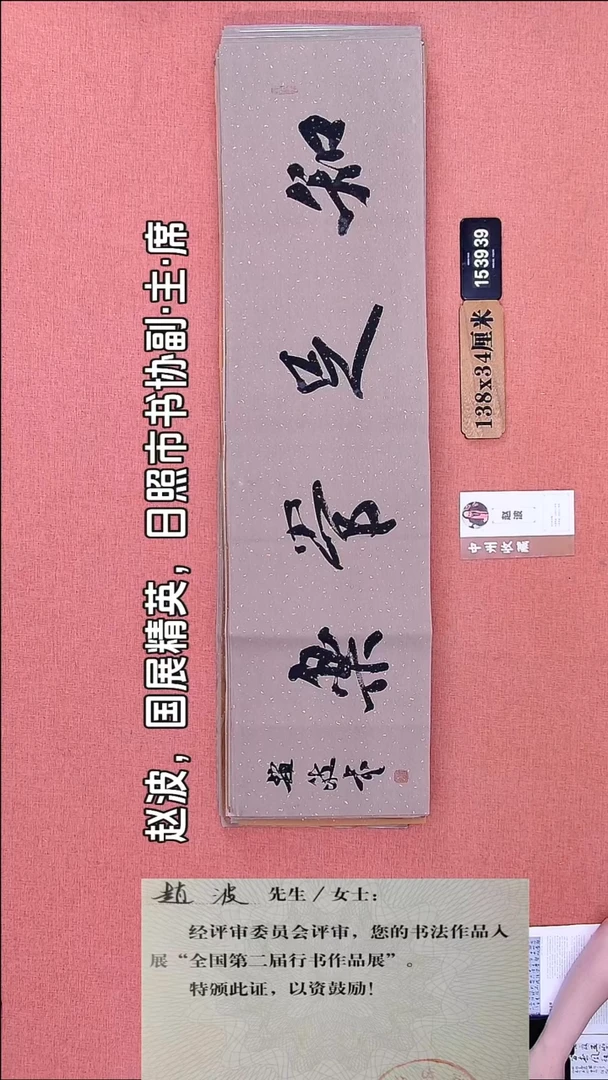 赵波，国展精英，日照市书协副·主·席
知足常樂
趙波书
153939
138x34厘米
赵波
中州收藏
趙波 先生／女士：
经评审委员会评审，您的书法作品入
展“全国第二届行书作品展”。
特颁此证，以资鼓励！